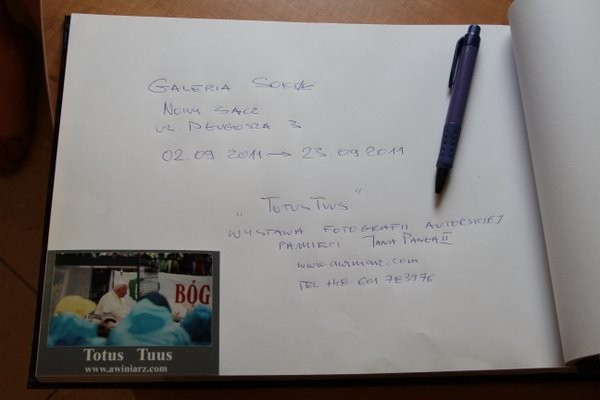 GALERIA SOKÓŁ
NOWY SĄCZ
UL. DŁUGOSZA 3
02.09.2011 → 23.09.2011
„TOTUS TUUS”
WYSTAWA FOTOGRAFII AUTORSKIEJ
PAMIĘCI JANA PAWŁA II
www.awiniarz.com
TEL. +48 601 783976
BÓG
Totus Tuus
www.awiniarz.com